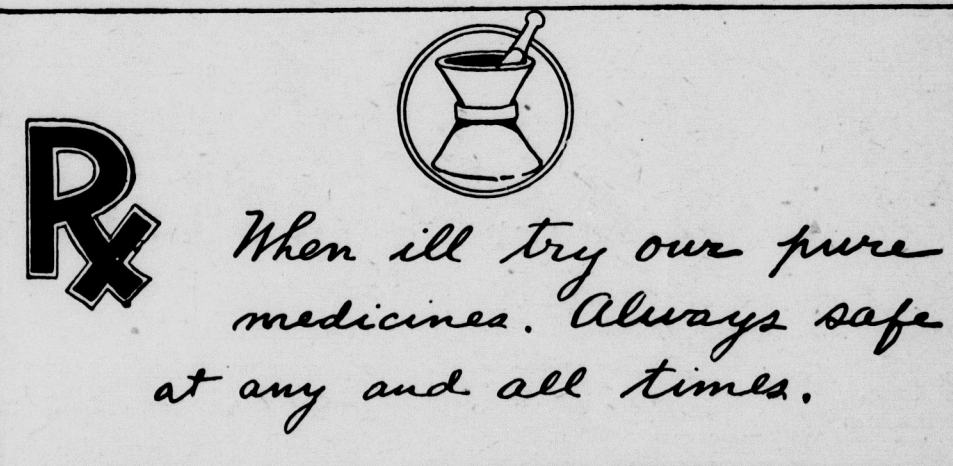 Rx
When ill try our pure
medicines. Always safe
at any and all times.